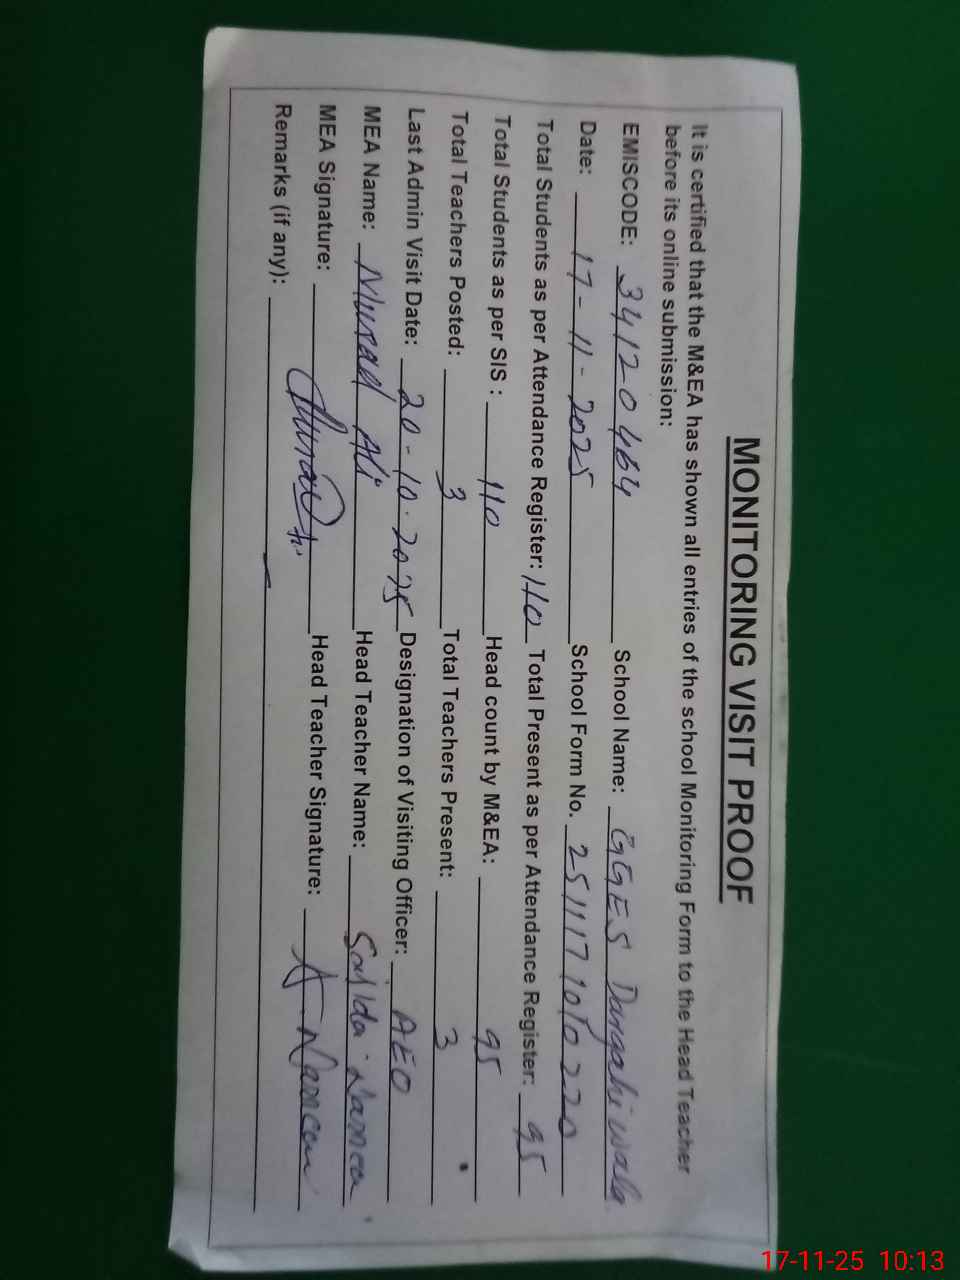 MONITORING VISIT PROOF
It is certified that the M&EA has shown all entries of the school Monitoring Form to the Head Teacher
before its online submission:
EMISCODE: 34120464 School Name: GGES Dargahi wala
Date: 17-11-2025 School Form No. 251117101022
Total Students as per Attendance Register: 110 Total Present as per Attendance Register: 95
Total Students as per SIS : 110 Head count by M&EA: 95
Total Teachers Posted: 3 Total Teachers Present: 3
Last Admin Visit Date: 20-10-2025 Designation of Visiting Officer: AEO
MEA Name: Murad Ali Head Teacher Name:
MEA Signature: Head Teacher Signature:
Remarks (if any):
17-11-25 10:13